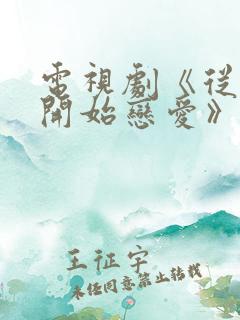 電視劇《從
開始戀愛》
王征宇
未经同意禁止转载